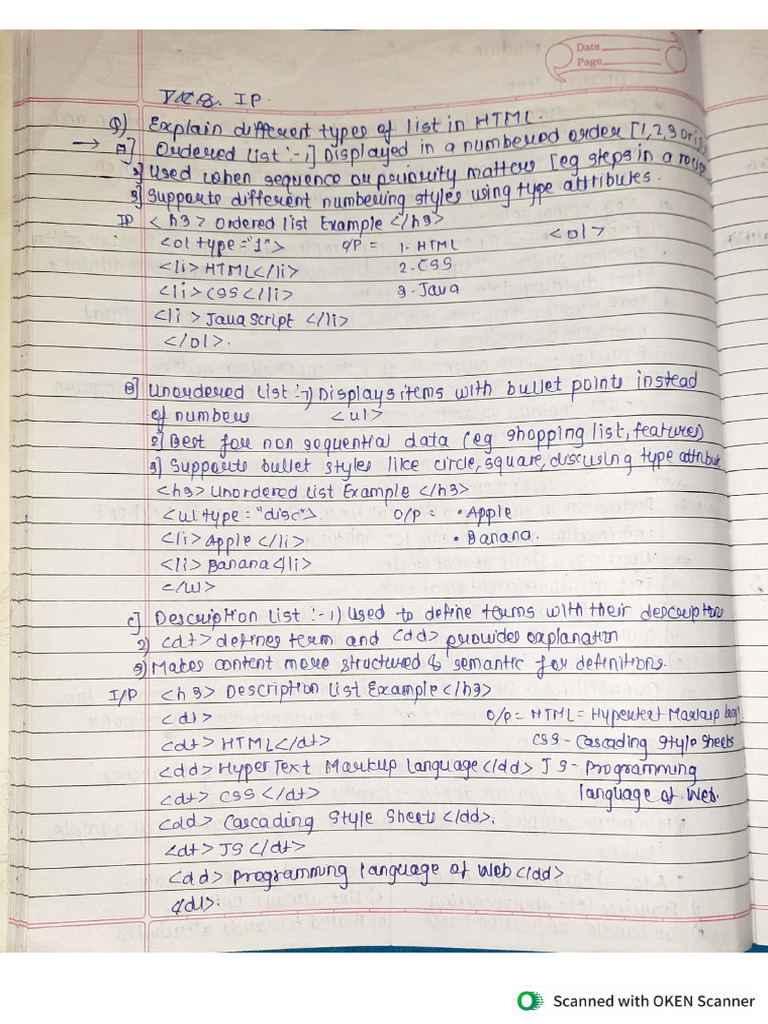 Date
Page
IP.
Q) Explain different types of list in HTML.
→ A] Ordered list :- 1] Displayed in a numbered order [1,2,3 or i,
2] Used when sequence or priority matters [eg steps in a
3] Supports different numbering styles using type attributes.
IP <h3> Ordered list Example </h3>
<ol type="1"> O/P = 1. HTML <ol>
<li> HTML</li> 2. CSS
<li> CSS </li> 3. Java
<li> JavaScript </li>
</ol>.
B] Unordered list :- 1) Displays items with bullet points instead
of numbers <ul>
2) Best for non sequential data (eg shopping list, features)
3) Supports bullet styles like circle, square, disc using type attribute
<h3> Unordered list Example </h3>
<ul type="disc"> O/P = • Apple
<li> Apple </li> • Banana.
<li> Banana </li>
</ul>
C] Description list :- 1) Used to define terms with their description
2) <dt> defines term and <dd> provides explanation
3) Makes content more structured & semantic for definitions.
I/P <h3> Description list Example </h3>
<dl> O/P = HTML = Hypertext Markup
<dt> HTML </dt> CSS - Cascading Style Sheets
<dd> HyperText Markup language </dd> JS - Programming
<dt> CSS </dt> language of Web.
<dd> Cascading Style Sheets </dd>.
<dt> JS </dt>
<dd> programming language of Web </dd>
</dl>.
Scanned with OKEN Scanner